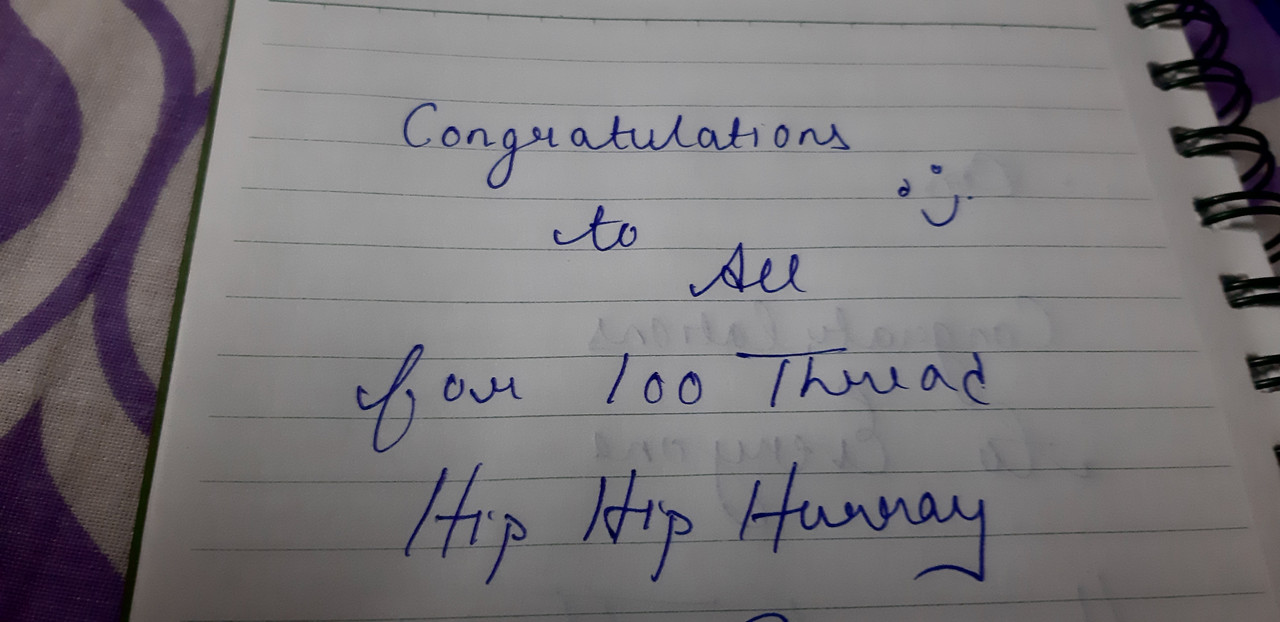 Congratulations
to
All
for 100 Thread
Hip Hip Hurray